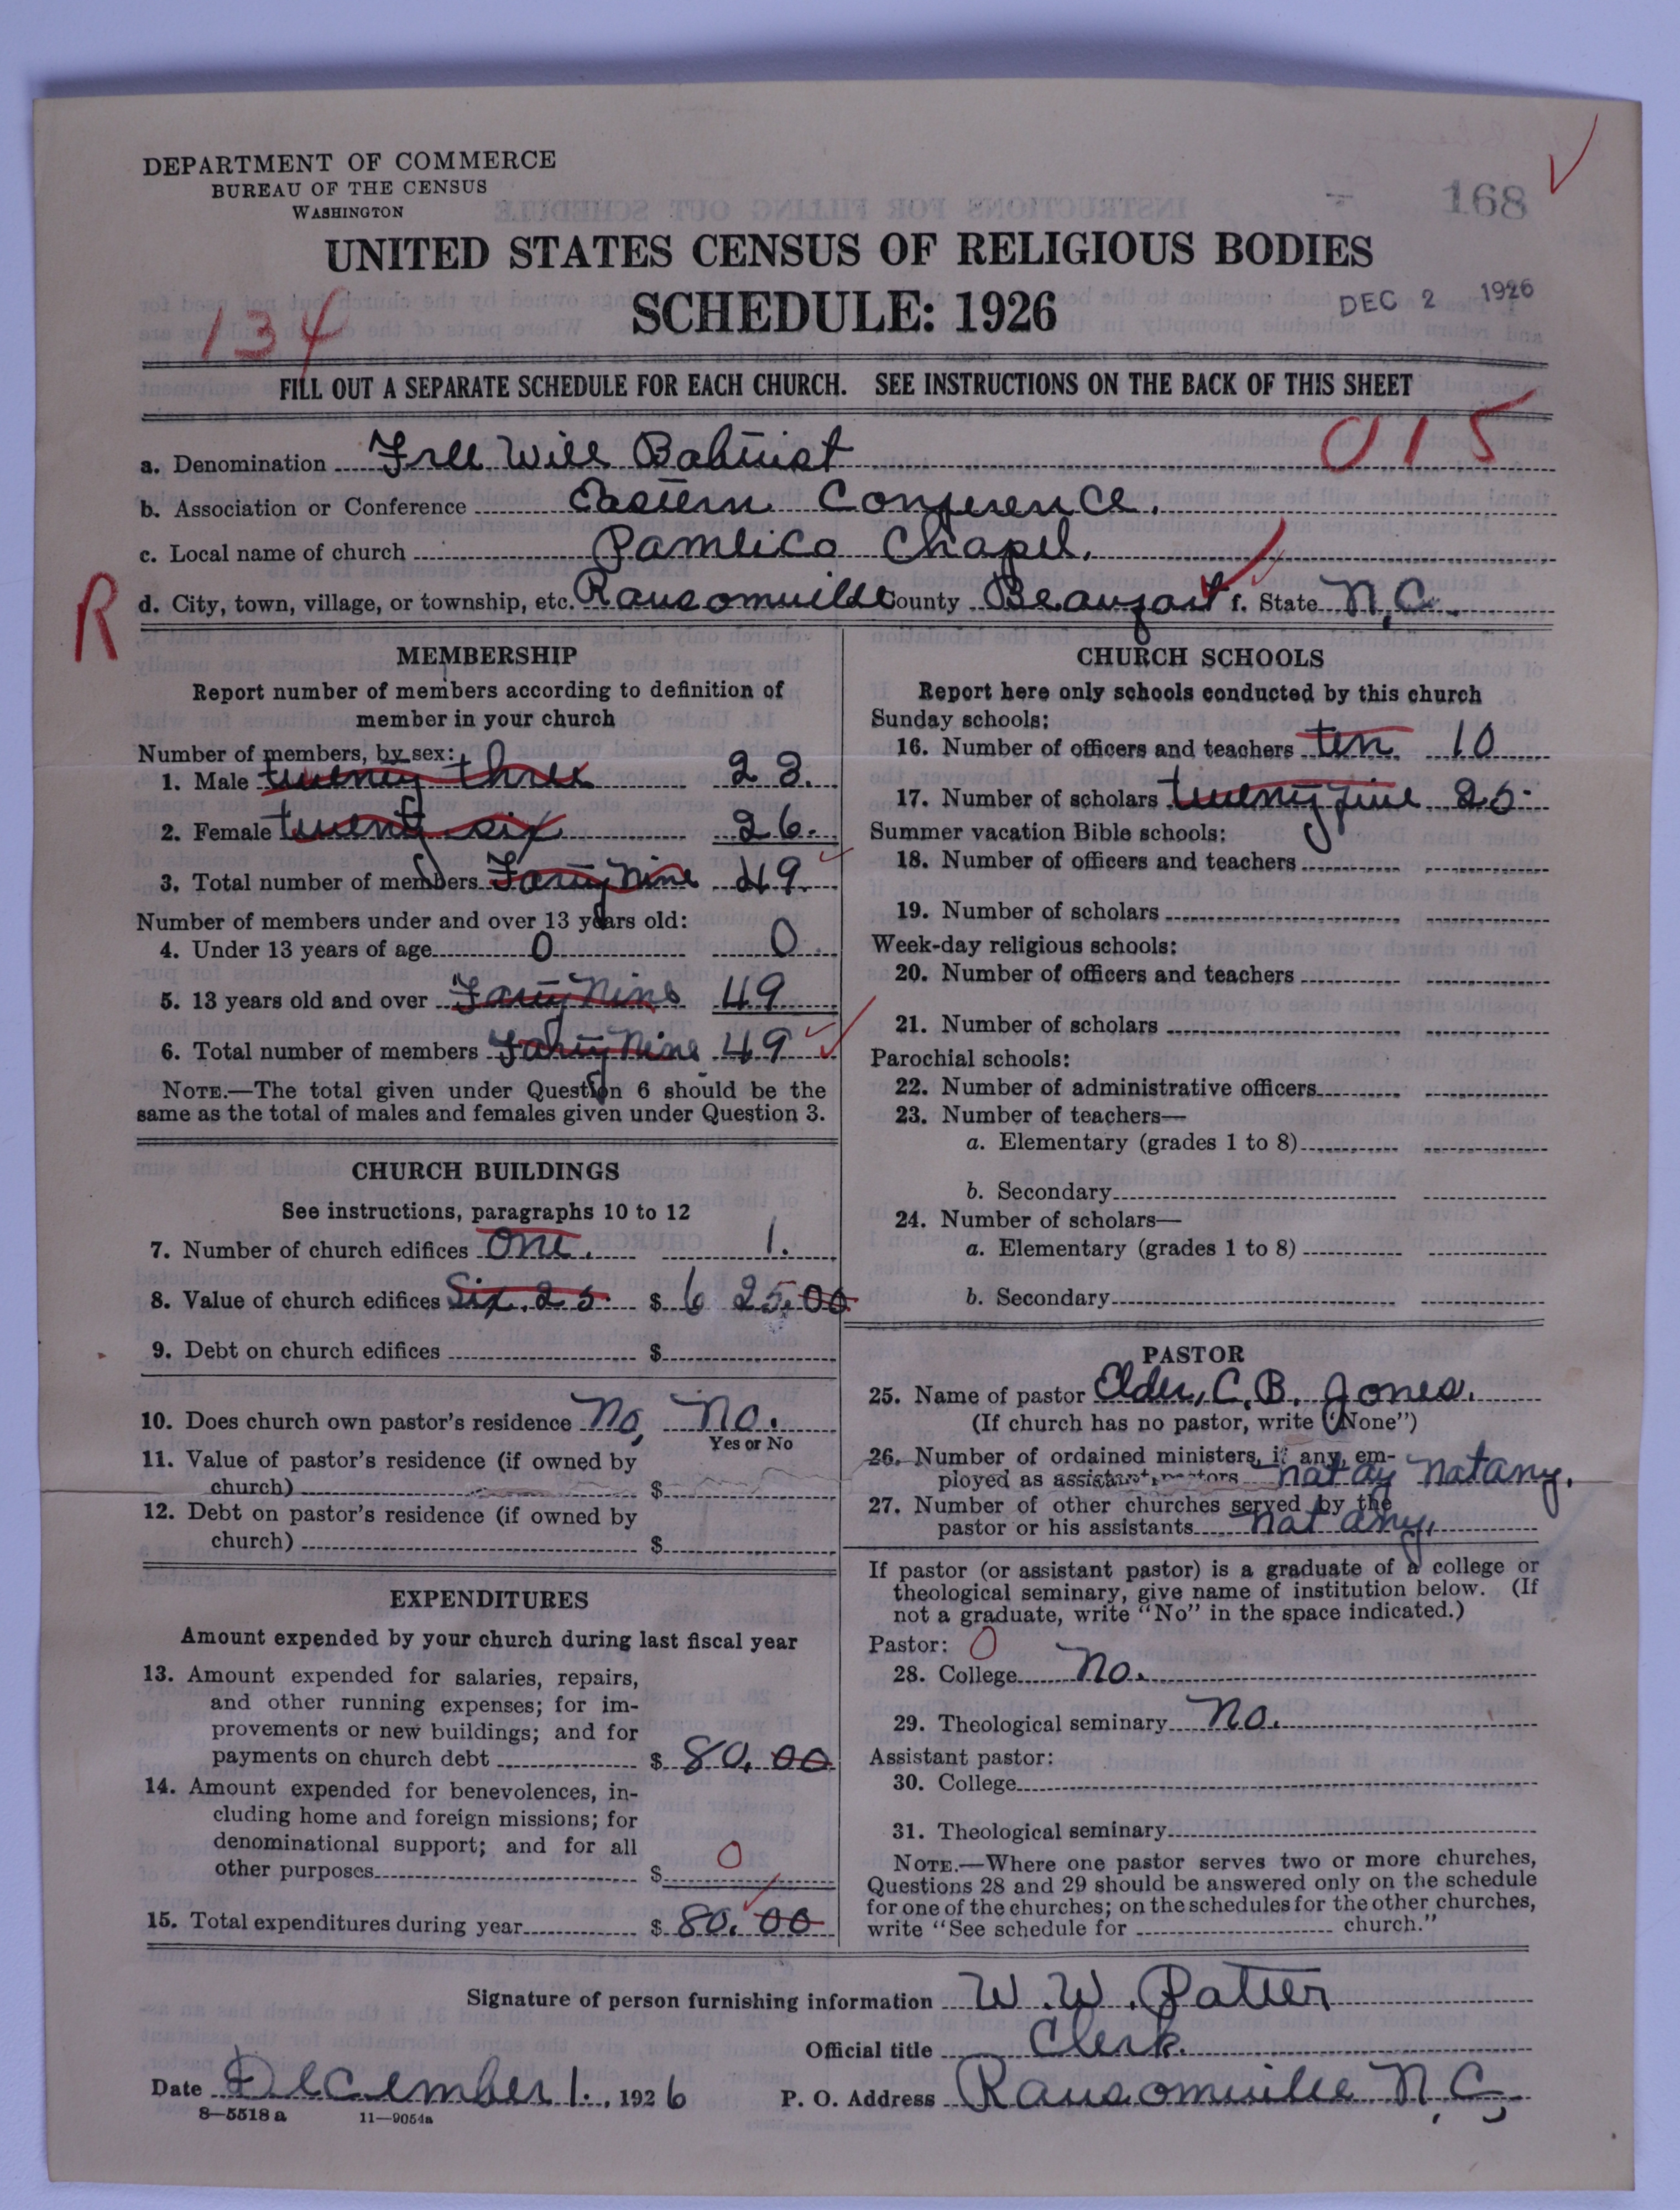 DEPARTMENT OF COMMERCE
BUREAU OF THE CENSUS
WASHINGTON
168
UNITED STATES CENSUS OF RELIGIOUS BODIES
SCHEDULE: 1926
DEC 2 1926
134
FILL OUT A SEPARATE SCHEDULE FOR EACH CHURCH. SEE INSTRUCTIONS ON THE BACK OF THIS SHEET
015
a. Denomination Free Will Babtist
b. Association or Conference Eastern Conference.
c. Local name of church Pamlico Chapel.
R
d. City, town, village, or township, etc. Ransomville County Beaufort f. State N.C.
MEMBERSHIP
Report number of members according to definition of
member in your church
Number of members, by sex:
1. Male twenty three 23.
2. Female twenty six 26.
3. Total number of members Forty Nine 49.
Number of members under and over 13 years old:
4. Under 13 years of age 0 0.
5. 13 years old and over Forty Nine 49
6. Total number of members Forty Nine 49
NOTE.—The total given under Question 6 should be the
same as the total of males and females given under Question 3.
CHURCH BUILDINGS
See instructions, paragraphs 10 to 12
7. Number of church edifices One. 1.
8. Value of church edifices Six.25. $ 6 25.00
9. Debt on church edifices $
10. Does church own pastor's residence No, No.
Yes or No
11. Value of pastor's residence (if owned by
church) $
12. Debt on pastor's residence (if owned by
church) $
EXPENDITURES
Amount expended by your church during last fiscal year
13. Amount expended for salaries, repairs,
and other running expenses; for im-
provements or new buildings; and for
payments on church debt $ 80.00
14. Amount expended for benevolences, in-
cluding home and foreign missions; for
denominational support; and for all
other purposes $ 0
15. Total expenditures during year $ 80.00
CHURCH SCHOOLS
Report here only schools conducted by this church
Sunday schools:
16. Number of officers and teachers ten 10
17. Number of scholars twenty five 25.
Summer vacation Bible schools:
18. Number of officers and teachers
19. Number of scholars
Week-day religious schools:
20. Number of officers and teachers
21. Number of scholars
Parochial schools:
22. Number of administrative officers
23. Number of teachers—
a. Elementary (grades 1 to 8)
b. Secondary
24. Number of scholars—
a. Elementary (grades 1 to 8)
b. Secondary
PASTOR
25. Name of pastor Elder, C. B. Jones.
(If church has no pastor, write "None")
26. Number of ordained ministers, if any, em-
ployed as assistant pastors not ay not any.
27. Number of other churches served by the
pastor or his assistants not any.
If pastor (or assistant pastor) is a graduate of a college or
theological seminary, give name of institution below. (If
not a graduate, write "No" in the space indicated.)
Pastor: 0
28. College No.
29. Theological seminary No.
Assistant pastor:
30. College
31. Theological seminary
NOTE.—Where one pastor serves two or more churches,
Questions 28 and 29 should be answered only on the schedule
for one of the churches; on the schedules for the other churches,
write "See schedule for church."
Signature of person furnishing information W. W. Potter
Official title Clerk.
Date December 1., 1926 P. O. Address Ransomville N.C.,
8—5518 a 11—9054a